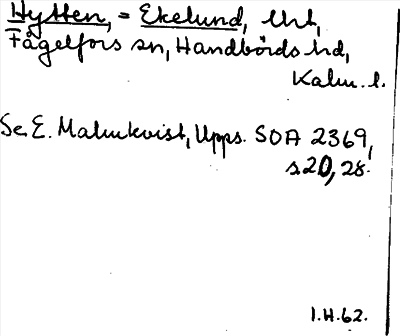 Hytten, = Ekelund, Uht,
Fågelfors sn, Handbörds hd,
Kalm. l.
Se E. Malmkvist, Upps. SOA 2369,
s. 20, 28.
I.H.62.